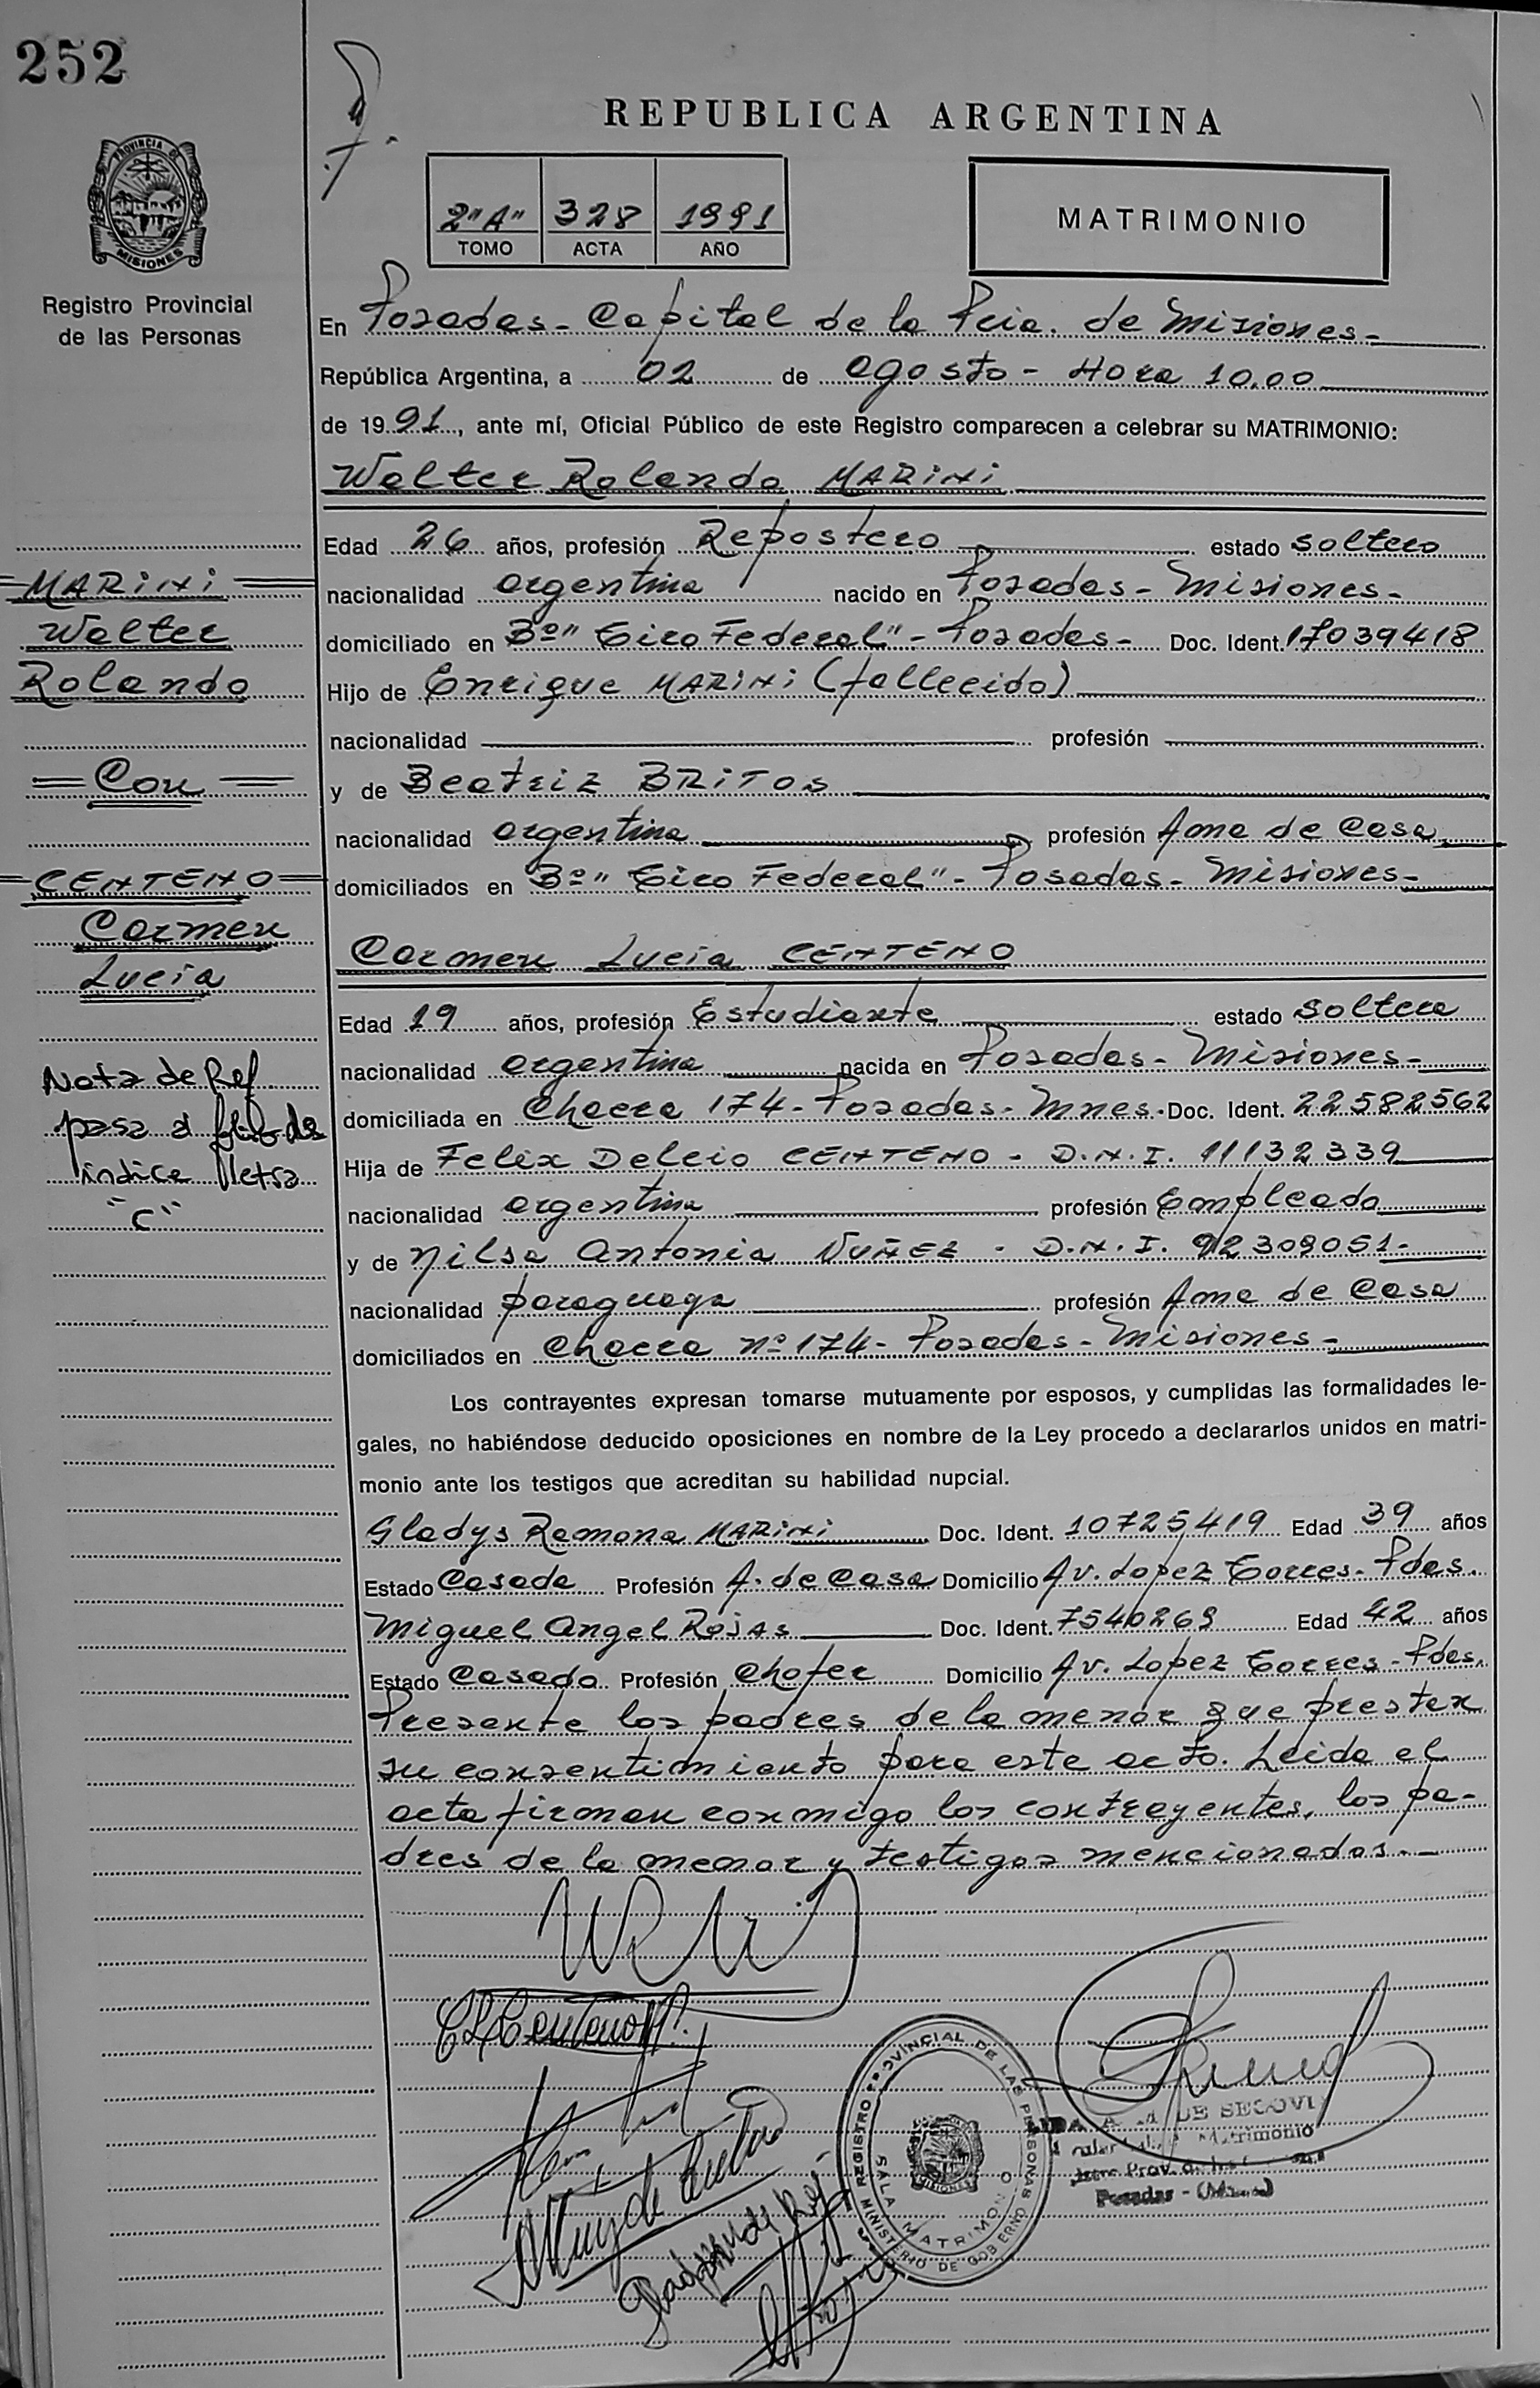 252
REPUBLICA ARGENTINA
PROVINCIA DE
MISIONES
2"A" 328 1991
TOMO ACTA AÑO
MATRIMONIO
Registro Provincial
de las Personas
En Posadas - Capital de la Pcia. de Misiones -
República Argentina, a 02 de agosto - Hora 10.00
de 1991, ante mí, Oficial Público de este Registro comparecen a celebrar su MATRIMONIO:
Walter Rolando MARINI
Edad 26 años, profesión Repostero estado soltero
nacionalidad argentina nacido en Posadas - Misiones -
domiciliado en Bº "Tiro Federal" - Posadas - Doc. Ident. 17039418
Hijo de Enrique MARINI (fallecido)
nacionalidad profesión
y de Beatriz BRITOS
nacionalidad argentina profesión Ama de Casa
domiciliados en Bº "Tiro Federal" - Posadas - Misiones -
MARINI
Walter
Rolando
Con
CENTENO
Carmen
Lucia
Nota de Ref
pasa a folio de
indice letra
"C"
Carmen Lucia CENTENO
Edad 19 años, profesión Estudiante estado soltera
nacionalidad argentina nacida en Posadas - Misiones -
domiciliada en Chacra 174 - Posadas - Mnes. Doc. Ident. 22582562
Hija de Felix Delcio CENTENO - D.N.I. 11132339
nacionalidad argentina profesión Empleado
y de Nilsa Antonia NUÑEZ - D.N.I. 92309051 -
nacionalidad paraguaya profesión Ama de Casa
domiciliados en Chacra nº 174 - Posadas - Misiones -
Los contrayentes expresan tomarse mutuamente por esposos, y cumplidas las formalidades le-
gales, no habiéndose deducido oposiciones en nombre de la Ley procedo a declararlos unidos en matri-
monio ante los testigos que acreditan su habilidad nupcial.
Gladys Ramona MARINI Doc. Ident. 10725419 Edad 39 años
Estado Casada Profesión A. de Casa Domicilio Av. Lopez Torres - Pdas.
Miguel Angel Rojas Doc. Ident. 7540269 Edad 42 años
Estado Casado Profesión Chofer Domicilio Av. Lopez Torres - Pdas.
Presente los padres de la menor que prestan
su consentimiento para este acto. Leida el
acta firman conmigo los contrayentes, los pa-
dres de la menor y testigos mencionados. -
C L Centeno
REGISTRO PROVINCIAL DE LAS PERSONAS
MINISTERIO DE GOBIERNO
SALA MATRIMONIO
MISIONES
DE SEGOVI
Matrimonio
Prov. de las
Posadas -